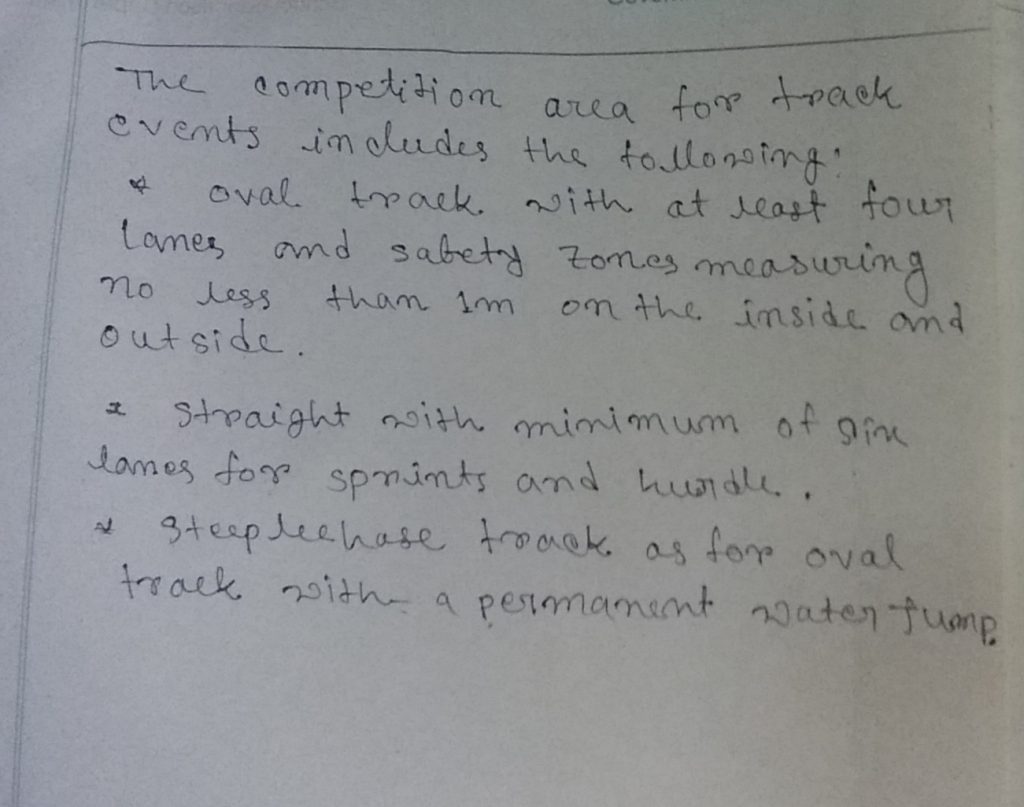 The competition area for track
events includes the following:
* oval track with at least four
lanes and safety zones measuring
no less than 1m on the inside and
outside.
* straight with minimum of six
lanes for sprints and hurdle.
* Steeplechase track as for oval
track with a permanent water jump.